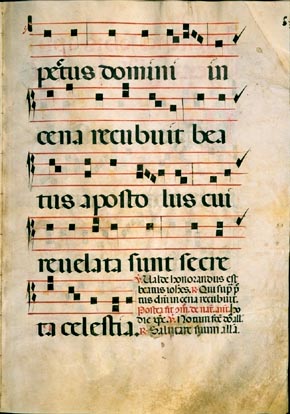 pectus domini in
cena recubuit bea
tus aposto lus cui
reuelata sunt secre
ta celestia.
℣. Ualde honorandus est
beatus iohes. ℟. Qui sup p
tus dni in cena recubuit.